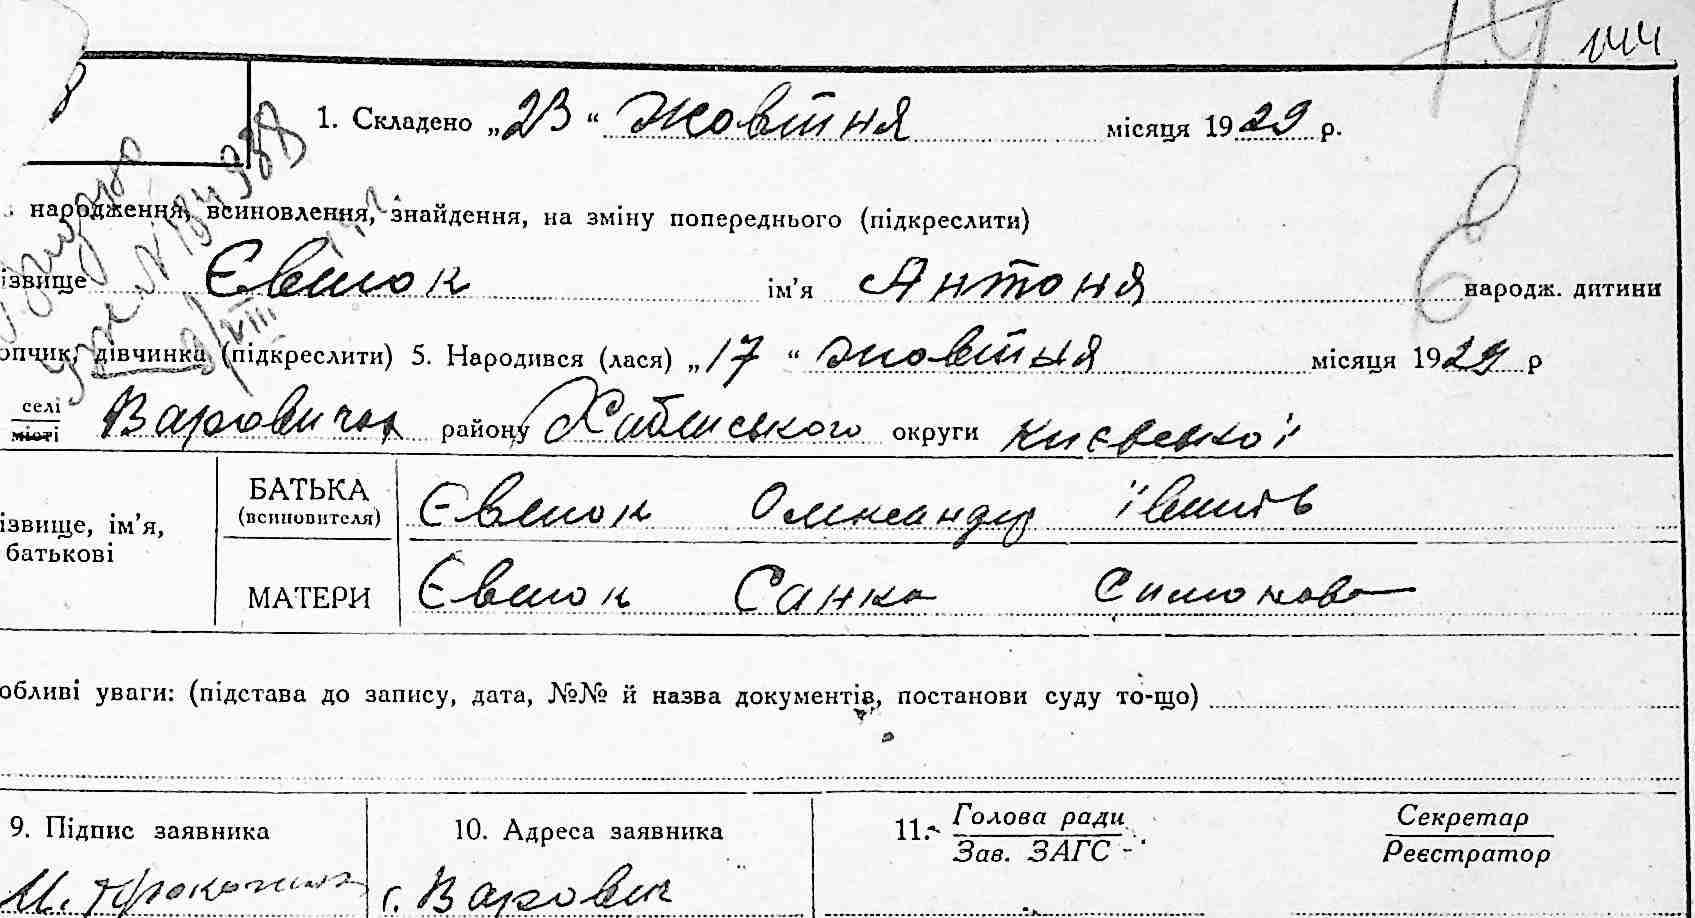 144
1. Складено „23“ жовтня місяця 1929 р.
народження, всиновлення, знайдення, на зміну попереднього (підкреслити)
ізвище Євшок ім’я Антоня народж. дитини
опчик, дівчинка (підкреслити) 5. Народився (лася) „17“ жовтня місяця 1929 р
селі
місті Варовичах району Хабенського округи Києвської
ізвище, ім’я,
батькові
БАТЬКА
(всиновителя) Євшок Олександр
МАТЕРИ Євшок Санка Симонова
обливі уваги: (підстава до запису, дата, №№ й назва документів, постанови суду то-що)
9. Підпис заявника 10. Адреса заявника 11. Голова ради Секретар
Зав. ЗАГС Реєстратор
с. Варович